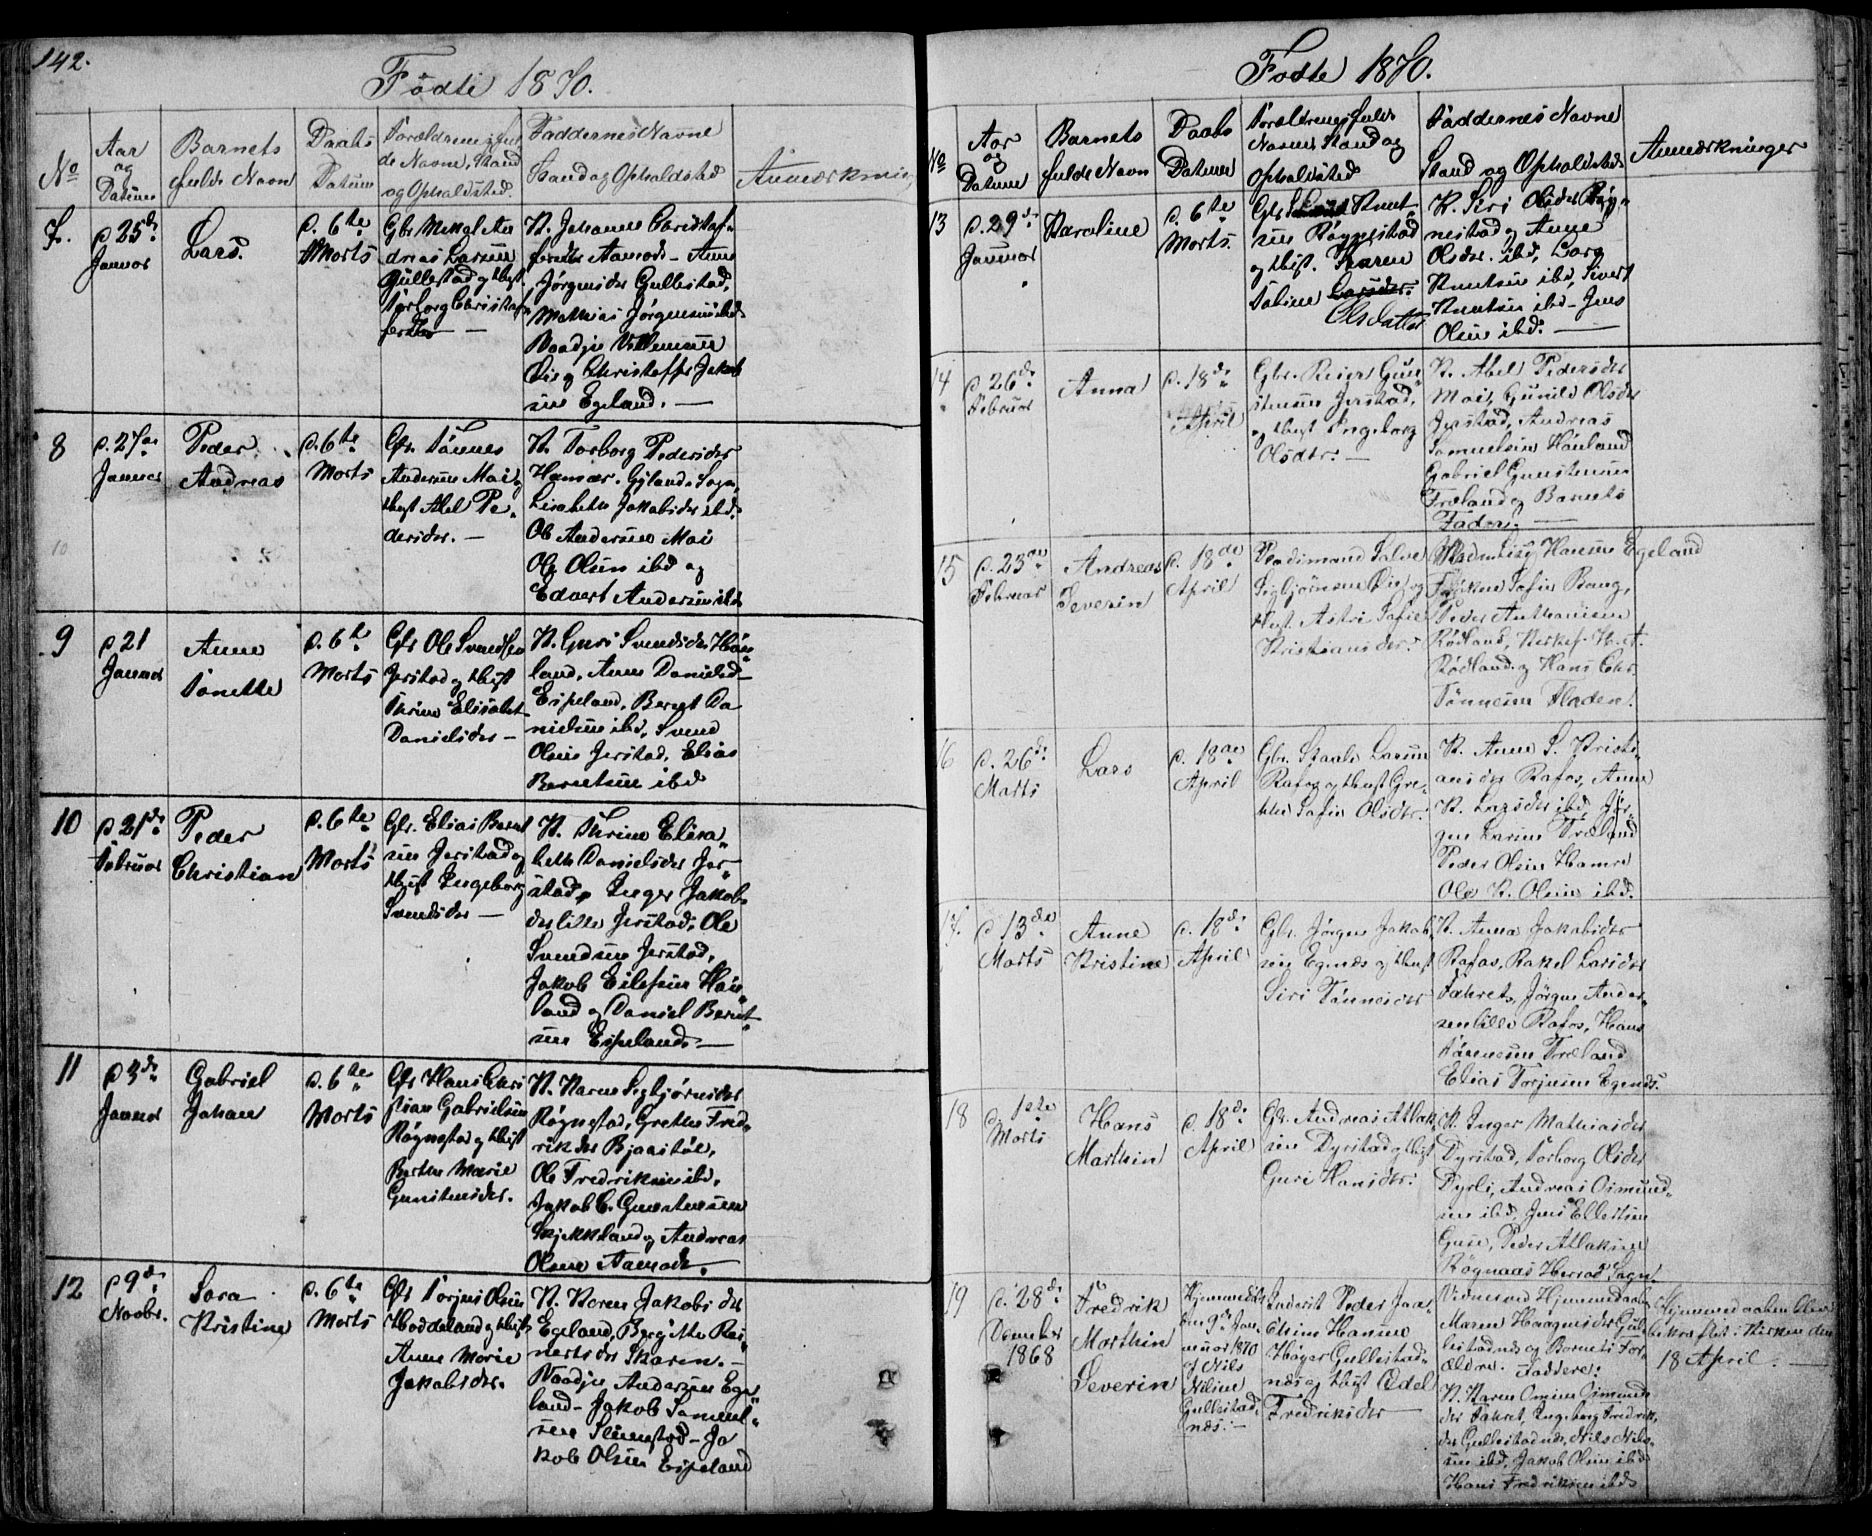 142.
Fødte 1870.
No
Aar og Datum
Barnets fulde Navn
Daabs Datum
Forældrenes fulde Navne, Stand og Opholdsted.
Faddernes Navne Stand og Opholdsted
Anmærkning
7.
d. 25de
Januar
Lars.
d. 6te
Marts
Gbr Mikal An
dreas Larsen
Gullestad og Hust
Torborg Christof
fersdtr
K. Johanne Christof
fersdtr Aamodt - Anne
Jørgensdtr Gullestad,
Mathias Jørgensen ibd
Christoffer Jakob
sen Egeland.
8
d. 27de
Januar
Peder
Andreas
d. 6te
Marts
Gbr Tønnes
Andersen Moi og
Hust Abel Pe
dersdtr.
K. Torborg Pedersdtr
Hamar. Gylands Sogn,
Lisabeth Jakobsdtr ibd.
Ole Andersen Moi
Ole Olsen ibd og
Edvert Andersen ibd
10
9
d. 21
Januar
Anne
Tonette
d. 6te
Marts
Gbr Ole Svendsen
Jerstad og Hust
Thrine Elisabet
Danielsdtr
K. Guri Svendsdtr Høi
land, Anne Danielsd
Espeland, Bernt Da
nielsen ibd, Svend
Olsen Jerstad, Elias
Berntsen ibd
10
d. 21de
Februar
Peder
Christian
d. 6te
Marts
Gbr. Elias Bernt
sen Jerstad og
Hust Ingeborg
Svendsdtr
K. Thrine Elisa
beth Danielsdtr Jer
stad, Inger Jakobs
dtr lille Jerstad, Ole
Svendsen Jerstad,
Jakob Eilefsen Høi
land og Daniel Bernt
sen Espeland.
11
d 3de
Januar
Gabriel
Johan
d. 6te
Marts
Gbr Hans Chri
stian Gabrielsen
Røgnestad og Hust
Berthe Marie
Gunstensdtr.
K. Karen Sigbjørnsdtr
Røgnestad, Grethe Fred
riksdtr Bjaastøl,
Ole Fredriksen ibd,
Jakob C. Gunstensen
Skjekkland og Andreas
Olsen Aamodt.
12
d 9de
Novbr.
Sara
Kristine
d. 6te
Marts
Gbr Torjus Olsen
Hoddeland og Hust
Anne Marie
Jakobsdtr.
K. Karen Jakobsdtr
Egeland, Bergitte Rei
nertsdtr Skaren.
Andersen Ege
land - Jakob Samuel
sen Slimestad - Ja
kob Olsen Espeland
Fødte 1870.
No
Aar og Datum
Barnets fulde Navn
Daabs Datum
Forældrenes fulde Navne Stand og Opholdsted
Faddernes Navne Stand og Opholdsted
Anmærkninger
13
d. 29de
Januar
Karoline
d. 6te
Marts.
Gbr Knut
sen Røgnestad
og Hust. Karen
Taline Larsdtr.
Olsdatter
K. Siri Olsdtr Røg
nestad og Anne
Olsdtr. ibd, Lars
Knutsen ibd, Sivert
Knutsen ibd - Jens
Olsen ibd.
14
d. 26de
Februar
Anna
d. 18de
April
Gbr. Reier Gun
stensen Jerstad,
og Hust Ingeborg
Olsdtr.
K. Abel Pedersdtr
Moi, Gunild Olsdtr
Jerstad, Andreas
Samuelsen Høiland
Gabriel Gunstensen
Træland og Barnets
Fader.
15
d. 23de
Februar
Andreas
Severin
d. 18de
April
Sigbjørnsen og
Hust. Astri Sofie
Kristiansdtr.
Hansen Egeland
Frøken Sofie Bang,
Peder Anthonisen
Rødland, Kirkes. K. A.
Rødland og Hans Chr
Tønnesen Fladen.
16
d. 26de
Marts
Lars
d. 18de
April
Gbr. Staale Larsen
Rafos og Hust Gre
the Sofie Olsdtr.
K. Anne S. Kristi
ansdtr Rafos, Anne
K. Larsdtr ibd, Jør
gen Larsen Træland
Peder Olsen Hamre
Ole K. Olsen ibd.
17.
d 13de
Marts
Anne
Kristine
d. 18de
April
Gbr. Jørgen Jakob
sen Egenes og Hust
Siri Tønnesdtr
K. Anna Jakobsdtr
Rafos, Rakel Larsdtr
Fahret, Jørgen Ander
sen lille Rafos, Hans
Tønnesen Træland
Elias Torjusen Egenes.
18
d. 1ste
Marts
Hans
Marthin
d. 18de
April
Gbr. Andreas Atlak
sen Dyrstad og Hust
Guri Hansdtr.
K. Inger Mathiasdtr
Dyrstad, Torborg Olsdtr
Dyrli, Andreas Osmund
sen ibd, Jens Ellertsen
Guse, Peder Atlaksen
Røgnaas Herrad Sogn.
19
d. 28de
Decmber
1868
Fredrik
Marthin
Severin
Hjemmedøbt
den 9de Jan
uar 1870
af Nils
Nilsen
Gullestad
næs.
Inderst Peder Joa
chim Hansen
Høyer Gullestad
næs og Hust Edel
Fredriksdtr
Vidnes ved Hjemmedaaben
Maren Haagensdtr Gul
lestadnes og Barnets For
ældre. Faddere:
K. Karen Omine Osmunds
dtr Fahret, Ingeborg Fredrik
dtr Gullestadnes, Nils Nils
sen ibd, Jakob Olsen ibd
Hans Fredriksen ibd
Hjemmedaaben blev
bekræftet i Kirken den
18 April.